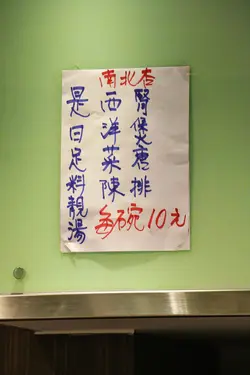 是日足料靚湯
南北杏
西洋菜陳
腎煲唐排
每碗10元